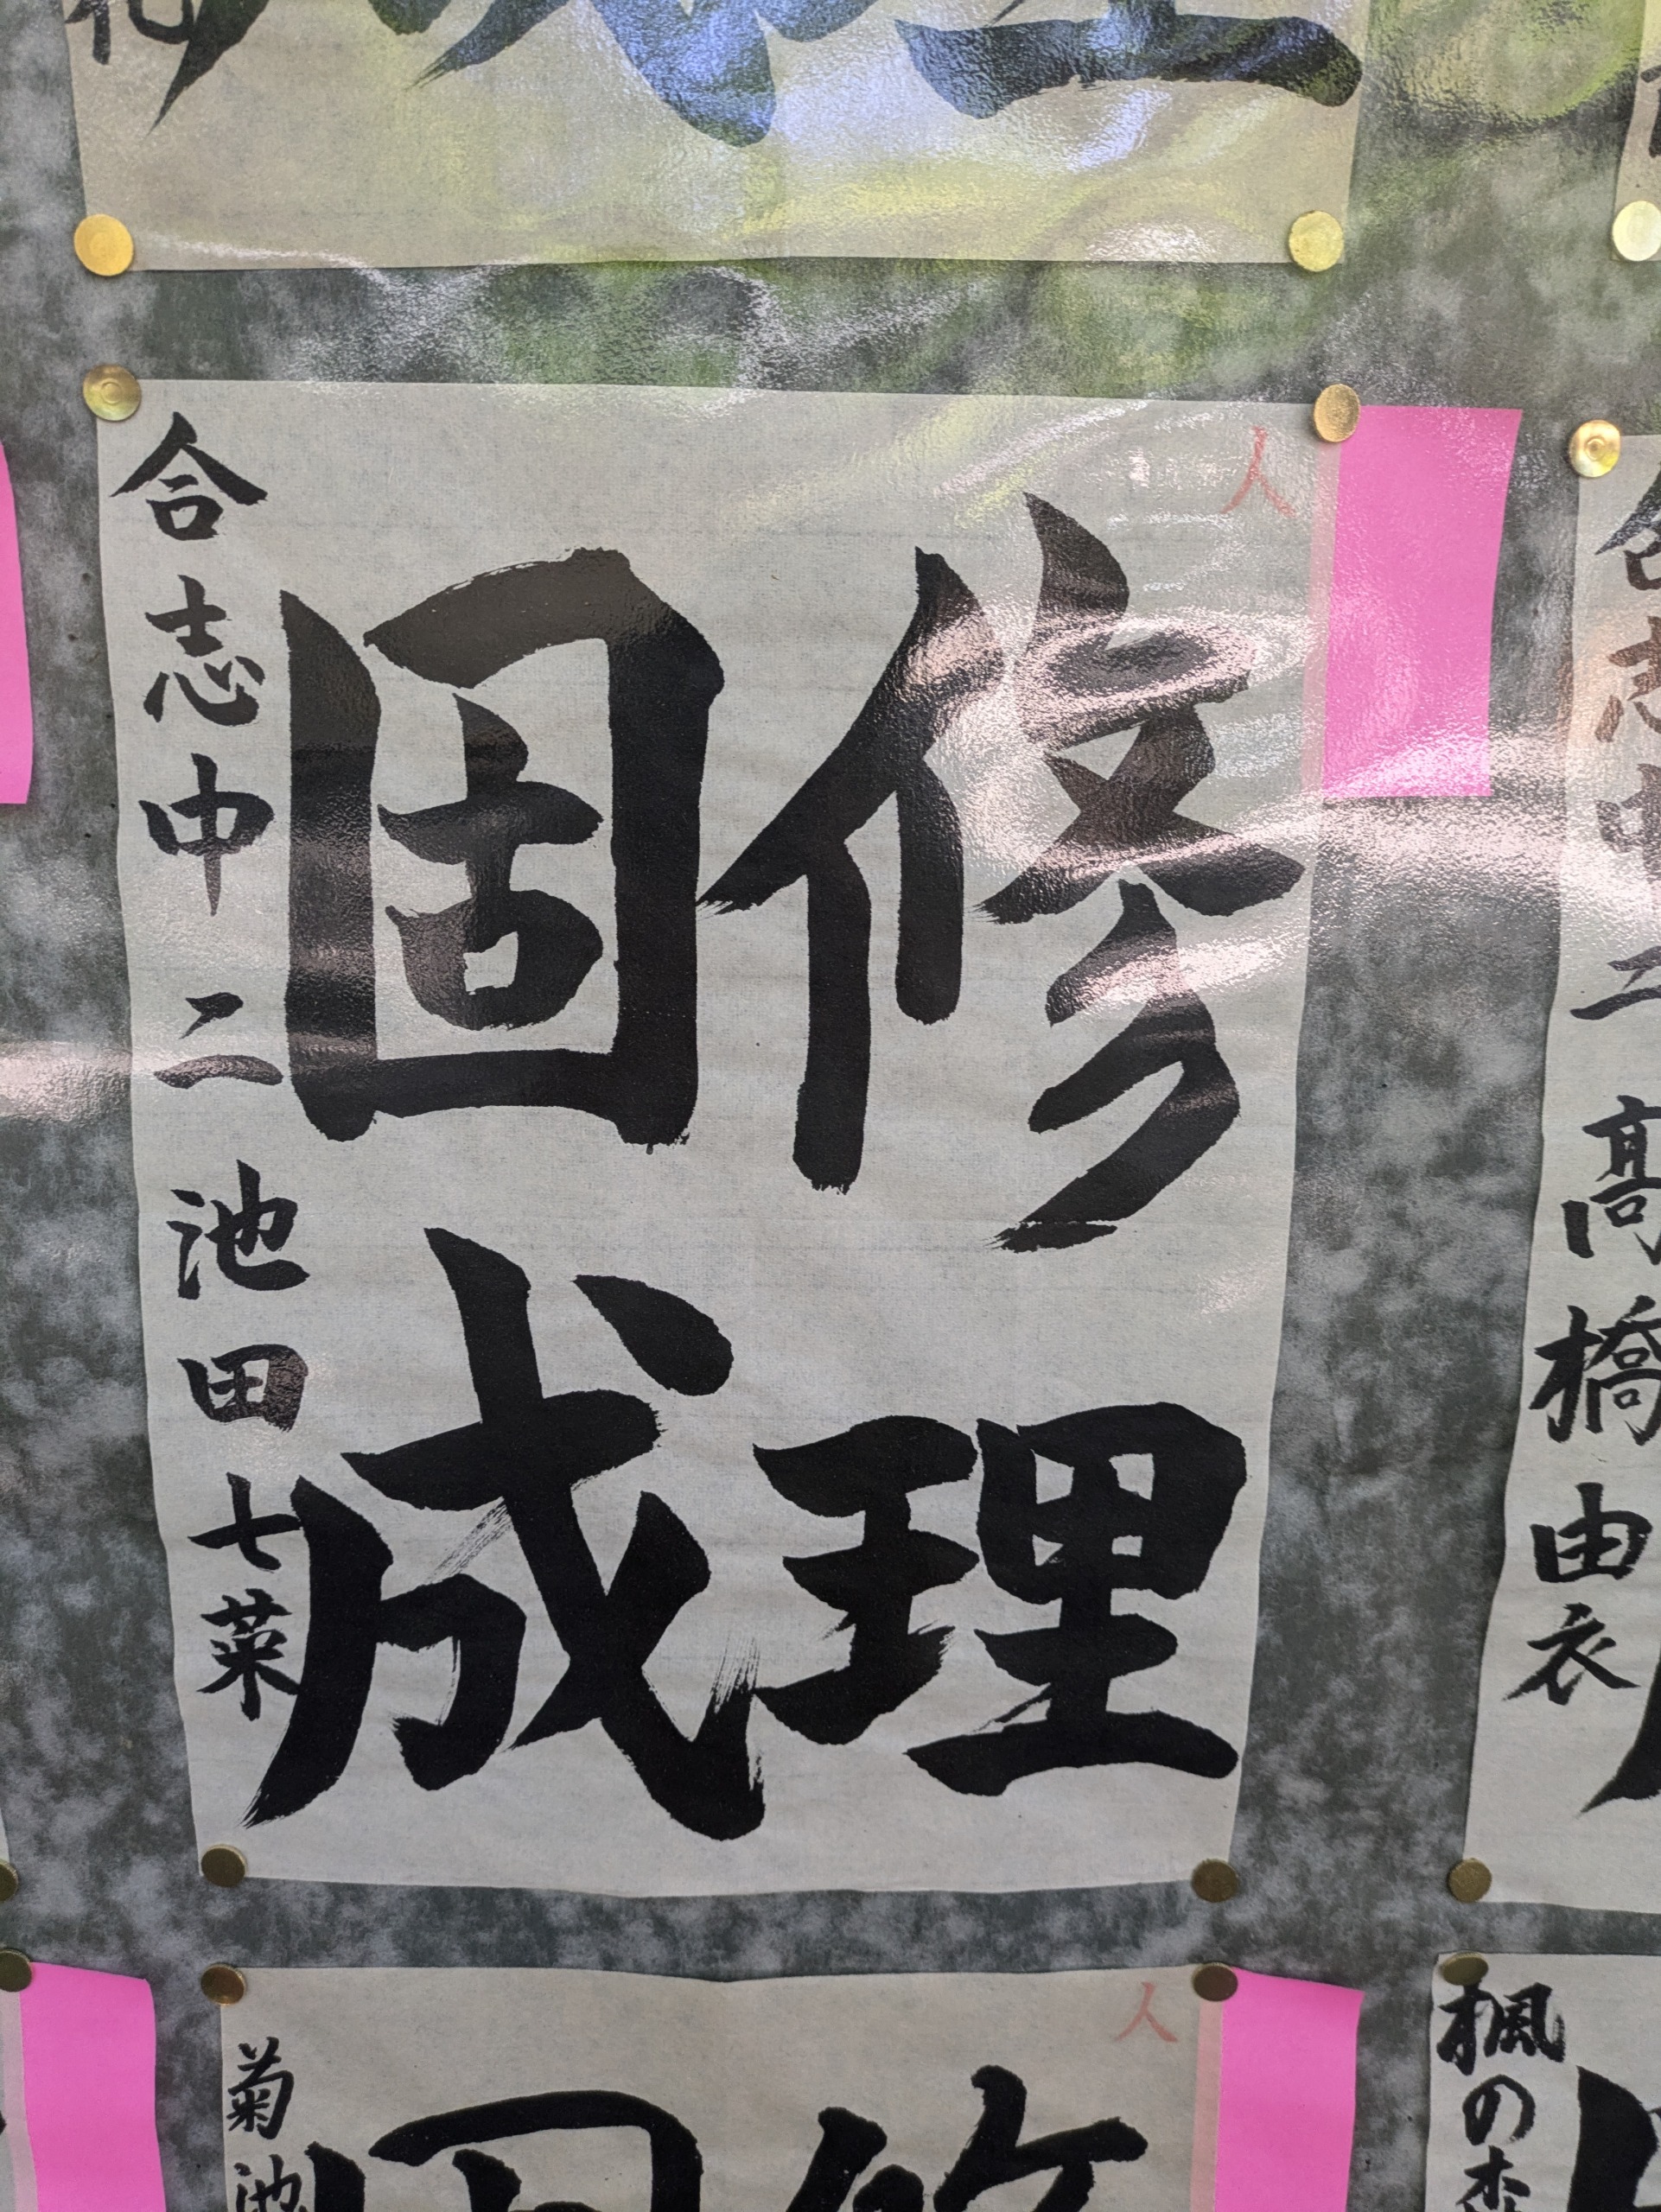 人
修理
固成
合志中二 池田七菜
高橋由衣
人
菊池
楓の